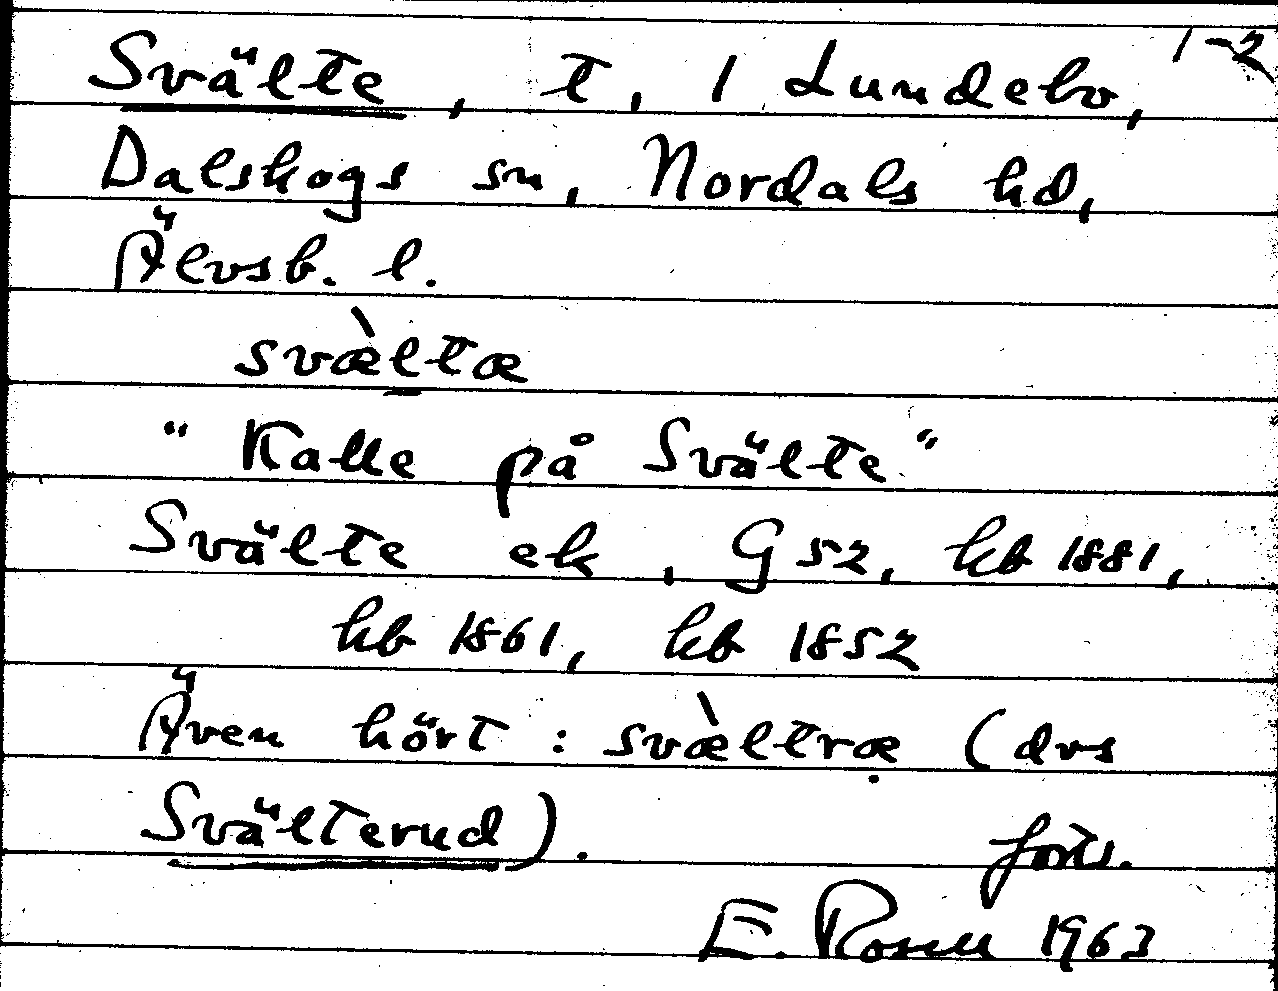 1-2
Svälte, t, 1 Lundebo,
Dalskogs sn, Nordals hd,
Älvsb. l.
svæ̀ltæ
"Kalle på Svälte"
Svälte ek, G 52, kb 1881,
kb 1861, kb 1852
Även hört: svæ̀ltræ̣ (dvs
Svälterud).
forts.
E. Rosell 1963